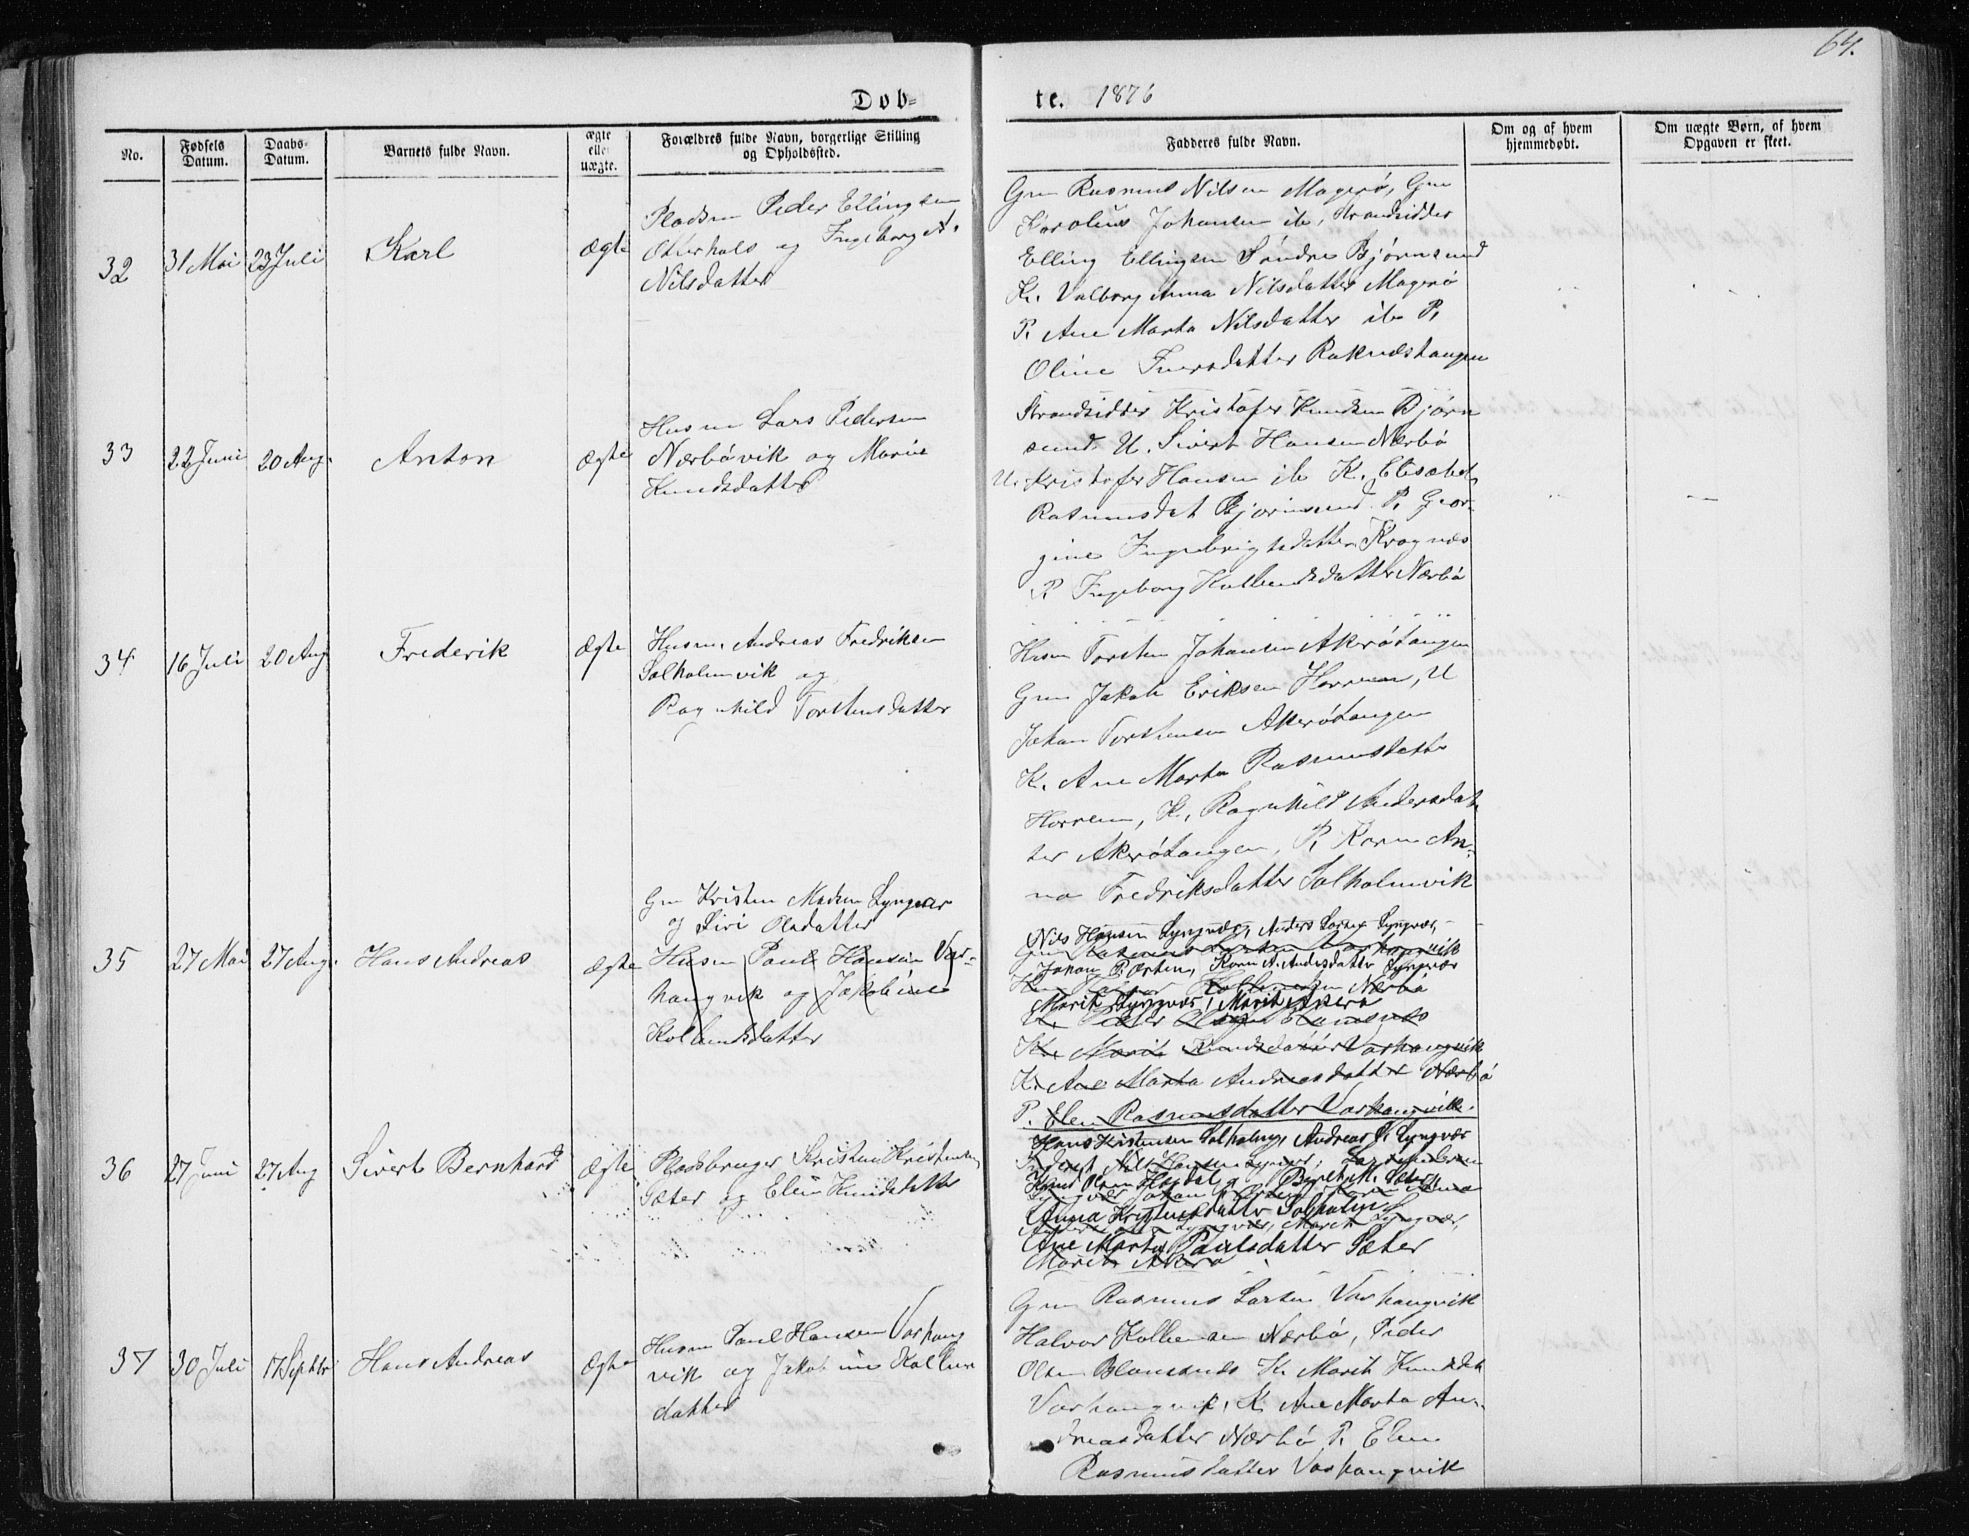 64.
Døb-
te. 1876
No.
Fødsels Datum.
Daabs-Datum.
Barnets fulde Navn.
ægte eller uægte.
Forældres fulde Navn, borgerlige Stilling
og Opholdssted.
Fadderes fulde Navn.
Om og af hvem
hjemmedøbt.
Om uægte Børn, af hvem
Opgaven er skeet.
32
31 Mai
23 Juli
Karl
ægte
Pladsm Peder Ellingsen
Oterhals og Ingeborg A.
Nilsdatter
Gm Rasmus Nilsen Magerø, Gm
Karolius Johansen ib, Strandsidder
Elling Ellingsen Søndre Bjørnsund
K. Valborg Anna Nilsdatter Magerø
P. Ane Marta Nilsdatter ib P.
Oline Iversdatter Raknæstangen
33
22 Juni
20 Aug.
Anton
ægte
Husm Lars Pedersen
Nærbøvik og Marie
Knudsdatter
Strandsidder Kristofer Knudsen Bjørn
sund U. Sivert Hansen Nærbø
U. Kristofer Hansen ib K. Elisabet
Rasmusdat Bjørnsund P. Geor-
gine Ingebrigtsdatter Kragnæs
P. Ingeborg Kolbensdatter Nærbø
34
16 Juli
20 Aug
Frederik
Ægte
Husm. Andreas Fredriksen
Solholmvik og
Ragnhild Torstensdatter
Husm Torsten Johansen Akerøtangen
Gm Jakob Eriksen Horrem, U
Johan Torstensen Akerøtangen
K. Ane Marta Rasmusdatter
Horrem, K. Ragnhild Andersdat
ter Akerøtangen, P. Karen An-
na Fredriksdatter Solholmvik
35
27 Mai
27 Aug.
Hans Andreas
Ægte
Gm Kristen Madsen Lyngvær
og Siri Olsdatter
Husm Paul Hansen Var-
hangvik og Jakobine
Kolbensdatter
Nils Hansen Lyngvær, Anders Larsen Lyngvær,
Gm Rasmus Larsen Varhangvik
Johan P. Ørsten, Karen A. Andersdatter Lyngvær
Kolbensen Nærbø
Marit Lyngvær, Marit Akerø
Peder Olsen Blomsnes
K. Marit Knudsdatter Varhangvik
K. Ane Marta Andreasdatter Nærbø
P. Elen Rasmusdatter Varhangvik.
36
27 Juni
27 Aug
Sivert Bernhard
Ægte
Pladsbruger Kristen Kristensen
Sæter og Elen Knudsdatter
Hans Kristensen Solholm, Andreas P. Lyngvær
Nils Hansen Lyngvær,
Knud Olsen Hasdal, Beret M. Sæter
Lyngvær Johan
Anna Kristensdatter Solholm
Lyngvær, Marit Lyngvær,
Ane Marta Paulsdatter Sæter
Marit Akerø
37
30 Juli
17 Septbr
Hans Andreas
Ægte
Husm Paul Hansen Varhang
vik og Jakobine Kolben
datter
Gm Rasmus Larsen Varhangvik
Halvor Kolbensen Nærbø, Peder
Olsen Blomsnes K. Marit Knudsdat
Varhangvik, K. Ane Marta An-
dreasdatter Nærbø P. Elen
Rasmusdatter Varhangvik